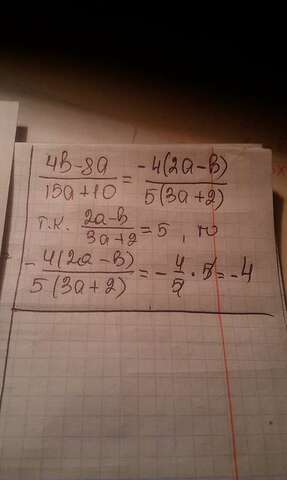 4b-8a / 15a+10 = -4(2a-b) / 5(3a+2)
т.к. 2a-b / 3a+2 = 5, то
- 4(2a-b) / 5(3a+2) = - 4/5 · 5 = -4